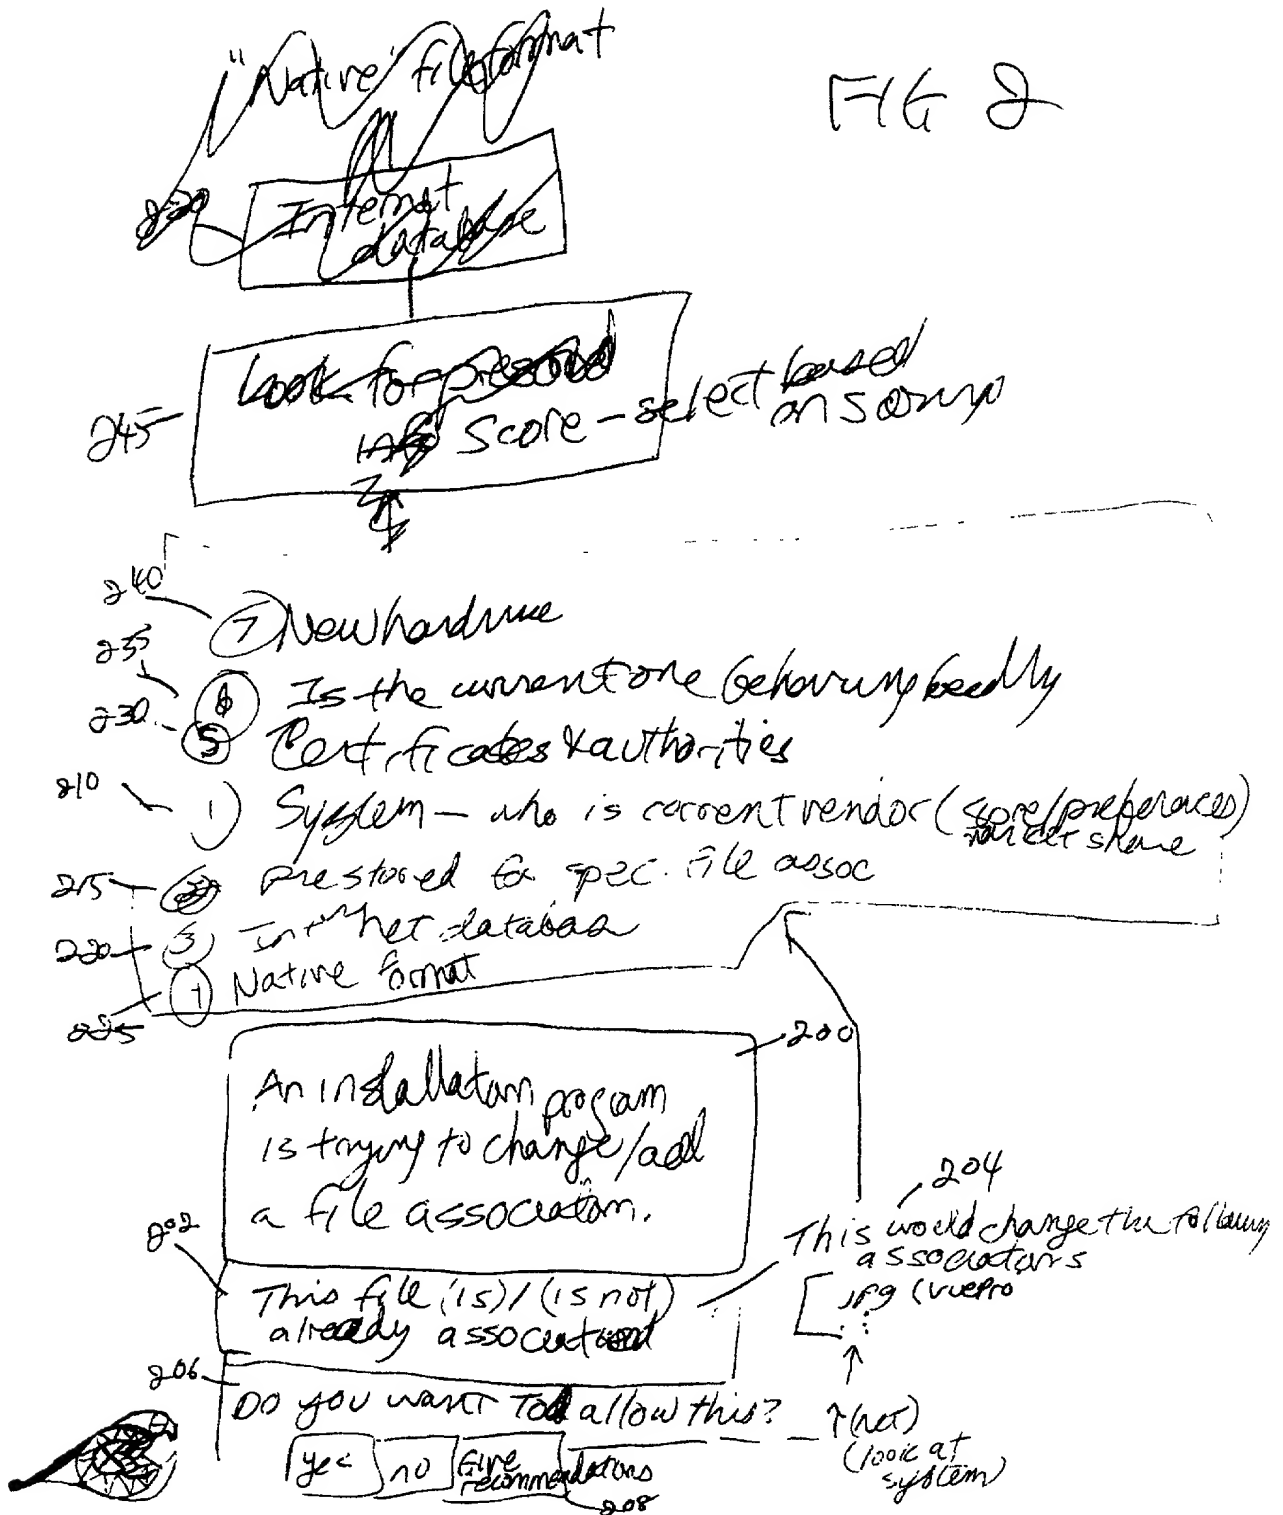 "Native" file format
FIG 2
220
Internet
database
Look for prestored
info Score - select based
on scoring
245
240
7 New hardware
235
6 Is the current one behaving badly
230
5 Certificates & authorities
210
1) System - who is current vendor (score/preferences)
market share
215
prestored for spec. file assoc
220
3 Internet database
225
Native format
200
An installation program
is trying to change/add
a file association.
204
This would change the following
associations
jpg (vuepro
202
This file (is)/(is not)
already associated
206
Do you want to allow this?
(net)
(look at
system)
yes
no
Give
recommendations
208